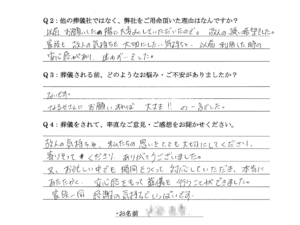 Q2：他の葬儀社ではなく、弊社をご用命頂いた理由はなんですか？
以前 お願いした時に大変よくしていただいたので。故人の強い希望でした。
家族も 故人の気持ちを 大切にしたい気持ちと、以前利用した時の
安心感があり、決め手でした。
Q3：葬儀される前、どのようなお悩み・ご不安がありましたか？
ないです。
なるせさんに お願いすれば 大丈夫!! の一言でした。
Q4：葬儀をされて、率直なご意見・ご感想をお聞かせください。
故人の気持ちや、私たちの思いをとても大切にしてくださり、
寄りそってくださり ありがとうございました。
又、お忙しい中でも 時間をつくって 対応していただき、本当に
あたたかく、安心感をもって葬儀を行うことができました。
家族一同 感謝の気持ちでいっぱいです。
・お名前